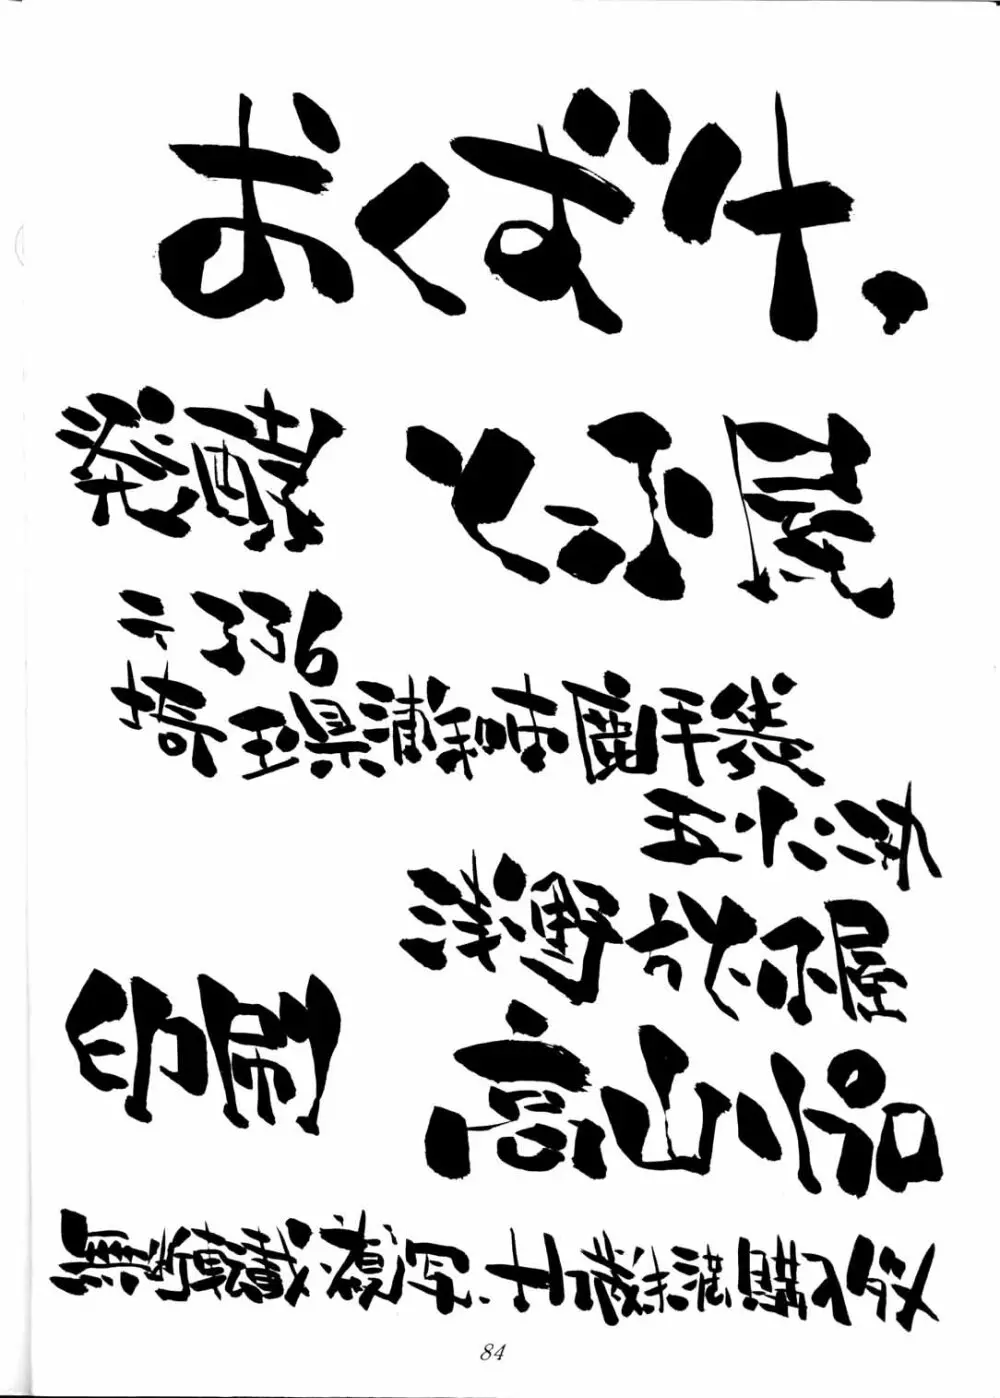 おくばけ、
発酵 とうふ屋
〒336
埼玉県浦和市鹿手袋
五ー十二ー
浅野方とうふ屋
印刷 高山プロ
無断転載・複写、十八歳未満購入ダメ
84